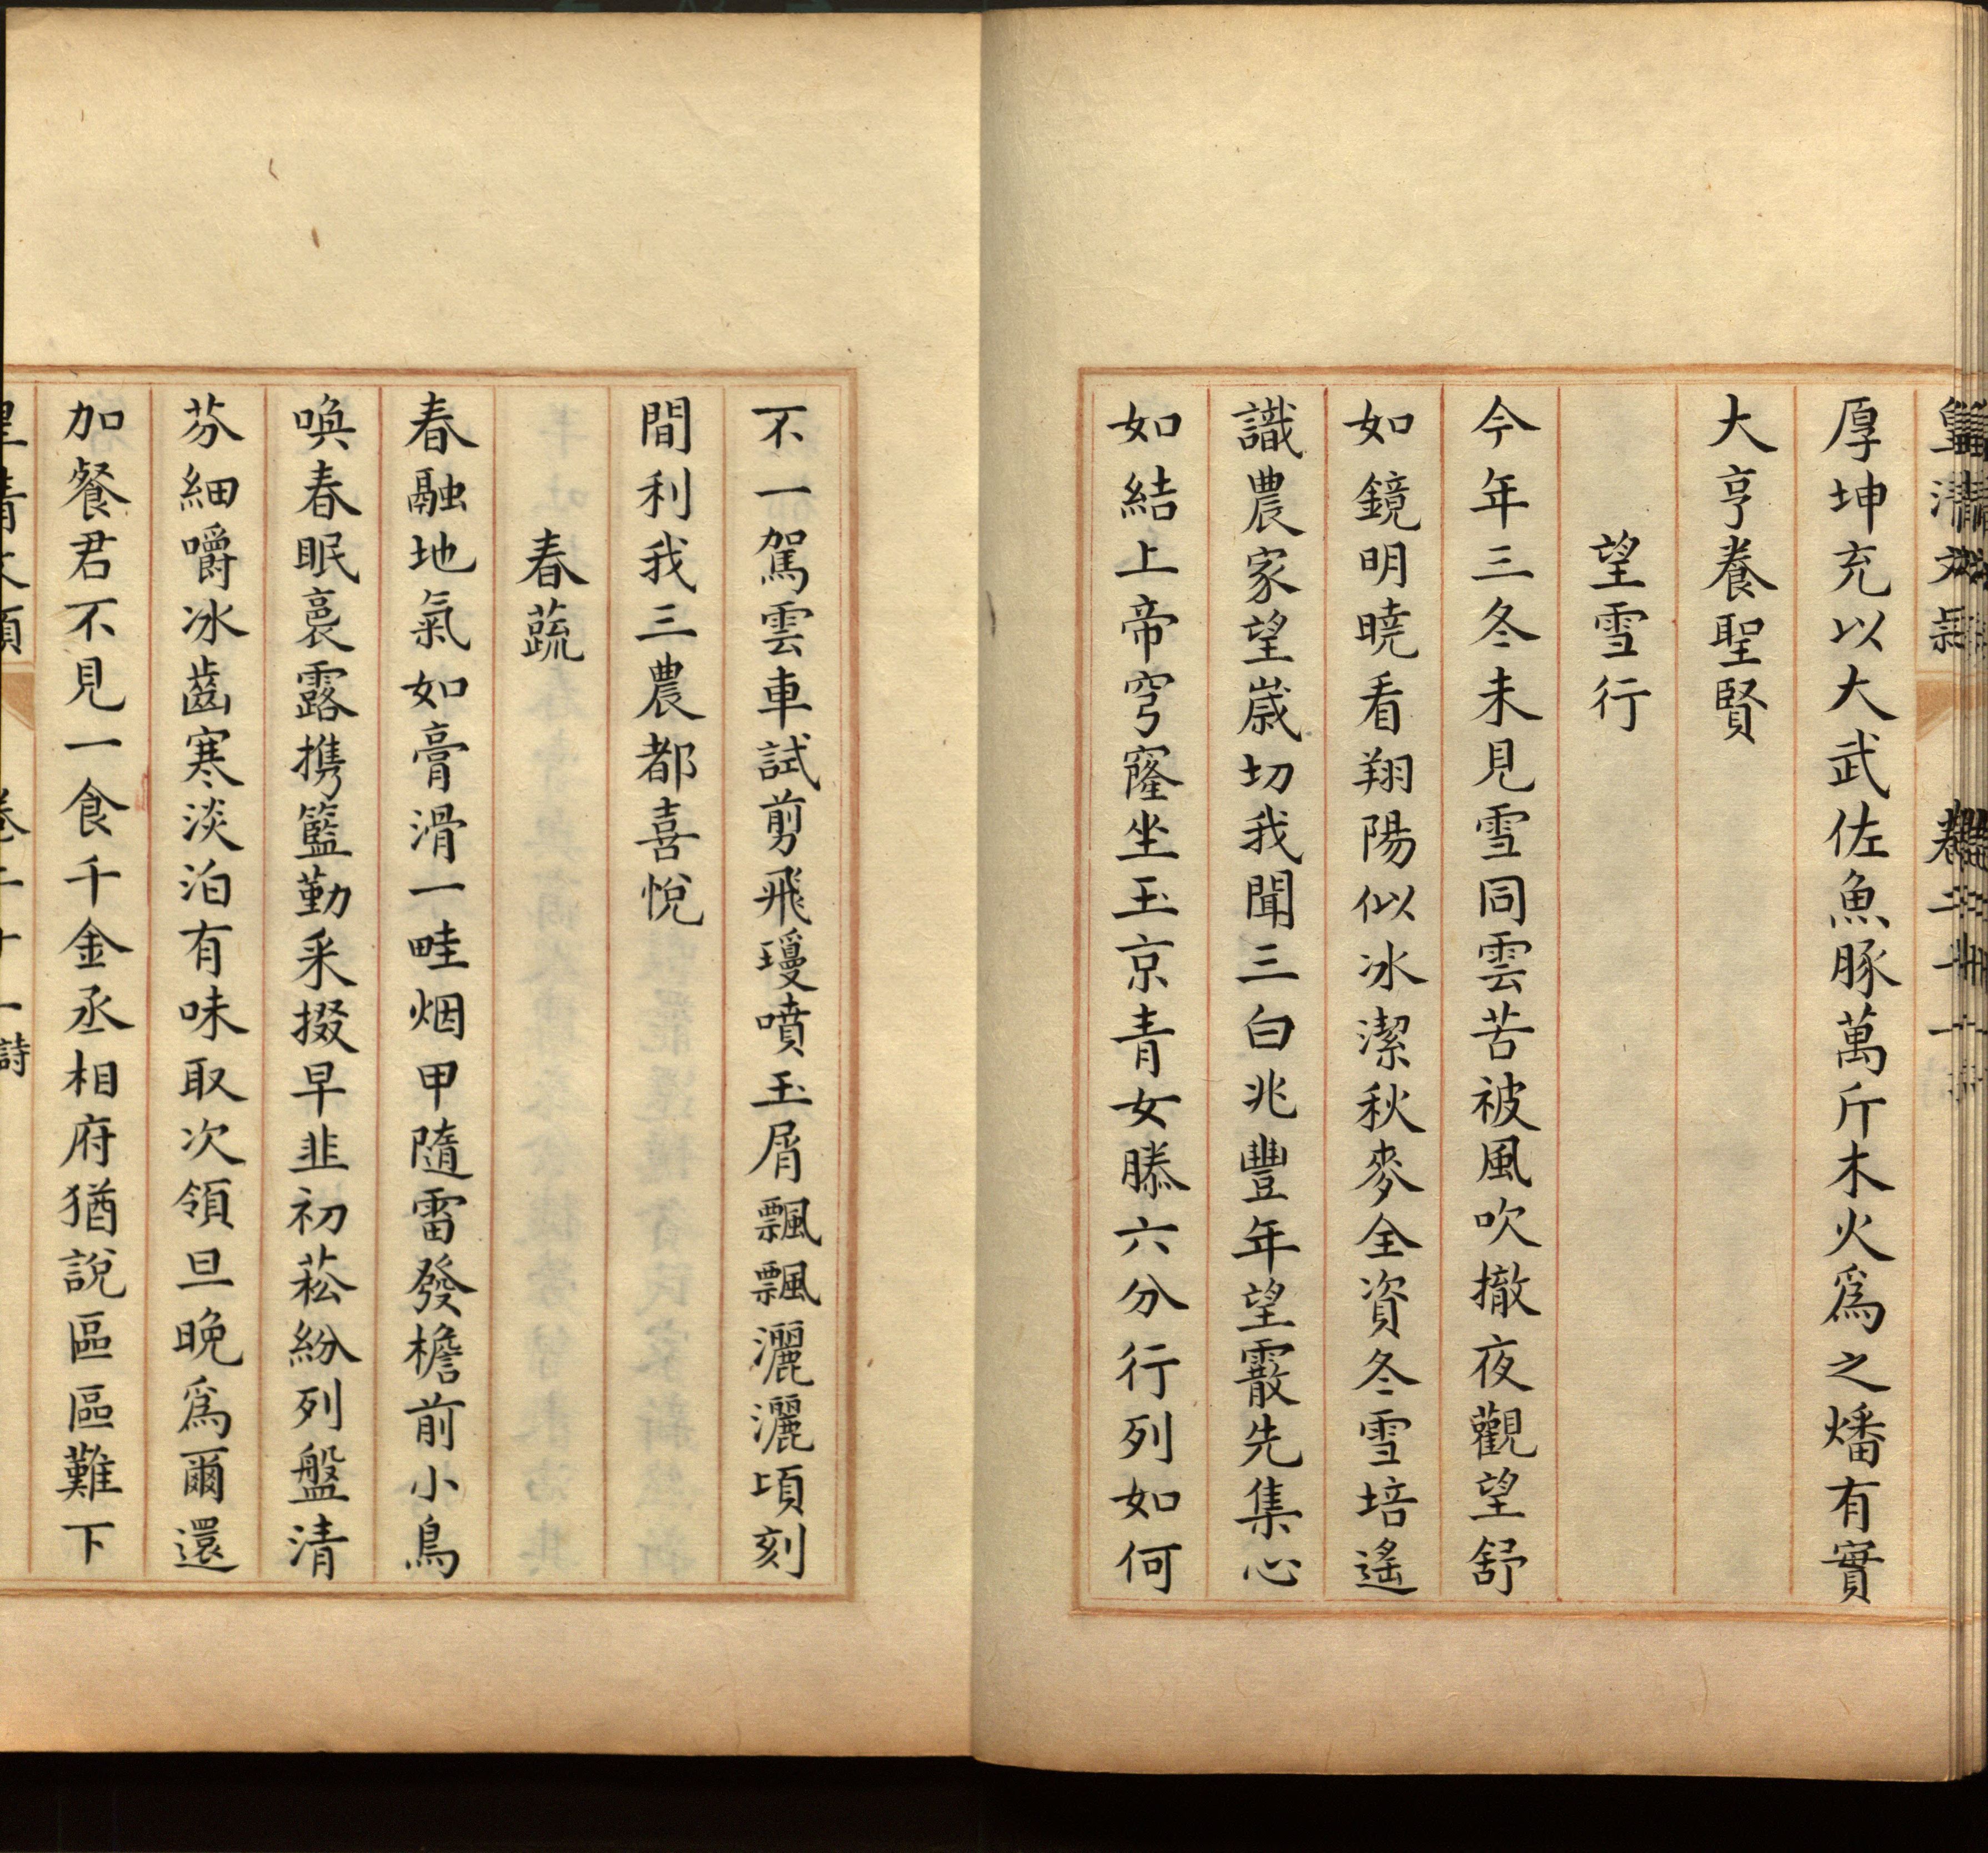 厚坤充以大武佐魚豚萬斤木火爲之燔有實
大亨養聖賢
望雪行
今年三冬未見雪同雲苦被風吹撤夜觀望舒
如鏡明曉看翔陽似冰潔秋麥全資冬雪培遙
識農家望嵗切我聞三白兆豐年望霰先集心
如結上帝穹窿坐玉京青女滕六分行列如何
不一駕雲車試剪飛瓊噴玉屑飄飄灑灑頃刻
間利我三農都喜悅
春蔬
春融地氣如膏滑一畦烟甲隨雷發檐前小鳥
喚春眠裛露携籃勤采掇早韭初菘紛列盤清
芬細嚼冰齒寒淡泊有味取次領旦晚爲爾還
加餐君不見一食千金丞相府猶說區區難下
皇清文穎 卷二十一 詩